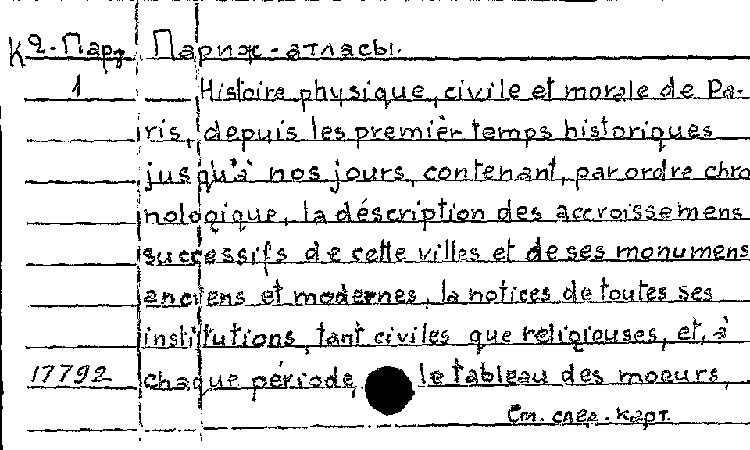 К 2-Пар Париж - атласы.
1 Histoire physique, civile et morale de Pa-
ris, depuis les premièr temps historiques
jusqu'à nos jours, contenant, par ordre chro
nologique, la déscription des accroissemens
successifs de cette villes et de ses monumens
anciens et modernes, la notices de toutes ses
institutions, tant civiles que religieuses, et, à
17792 chaque période, le tableau des moeurs,
См. след. карт.